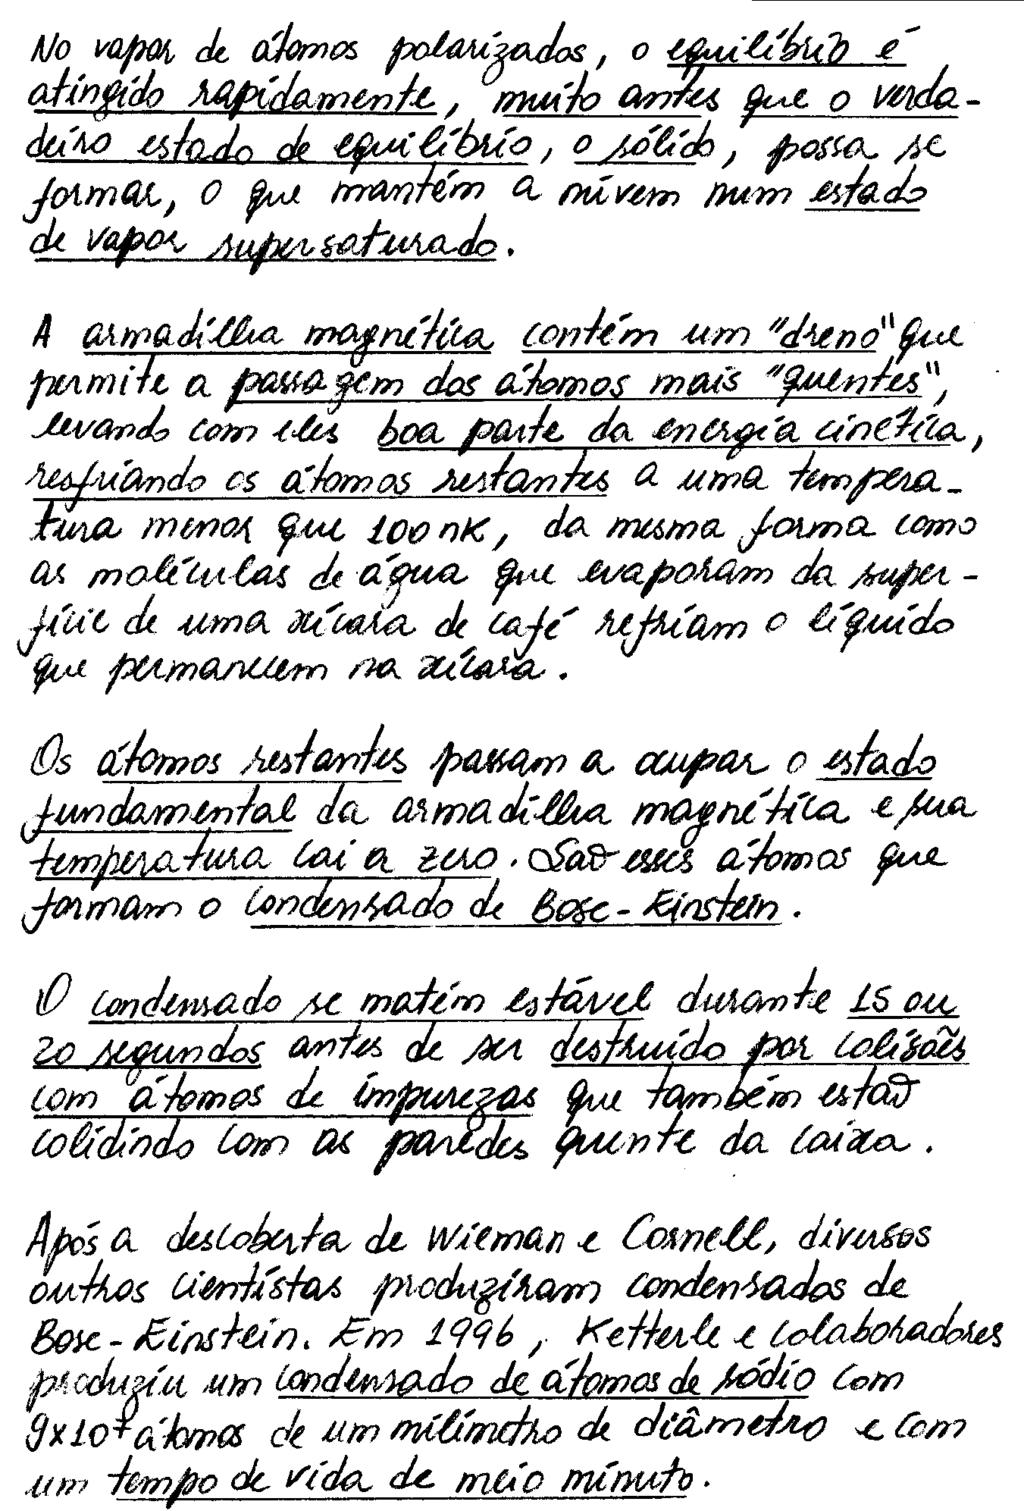 No vapor de átomos polarizados, o equilíbrio é
atingido rapidamente, muito antes que o verda-
deiro estado de equilíbrio, o sólido, possa se
formar, o que mantém a nivem num estado
de vapor supersaturado.
A armadilha magnética contém um "dreno" que
permite a passagem dos átomos mais "quentes",
levando com eles boa parte da energia cinética,
resfriando os átomos restantes a uma tempera-
tura menor que 100 nK, da mesma forma como
as moléculas de água que evaporam da super-
fície de uma xícara de café refriam o líquido
que permanecem na xícara.
Os átomos restantes passam a ocupar o estado
fundamental da armadilha magnética e sua
temperatura cai a zero. São esses átomos que
formam o condensado de Bose-Einstein.
O condensado se matém estável durante 15 ou
20 segundos antes de ser destruído por colisões
com átomos de impurezas que também estão
colidindo com as paredes quente da caixa.
Após a descoberta de Wieman e Cornell, diversos
outros cientistas produziram condensados de
Bose-Einstein. Em 1996, Ketterle e colaboradores
produziu um condensado de átomos de sódio com
9x10⁷ átomos de um milímetro de diâmetro e com
um tempo de vida de meio minuto.